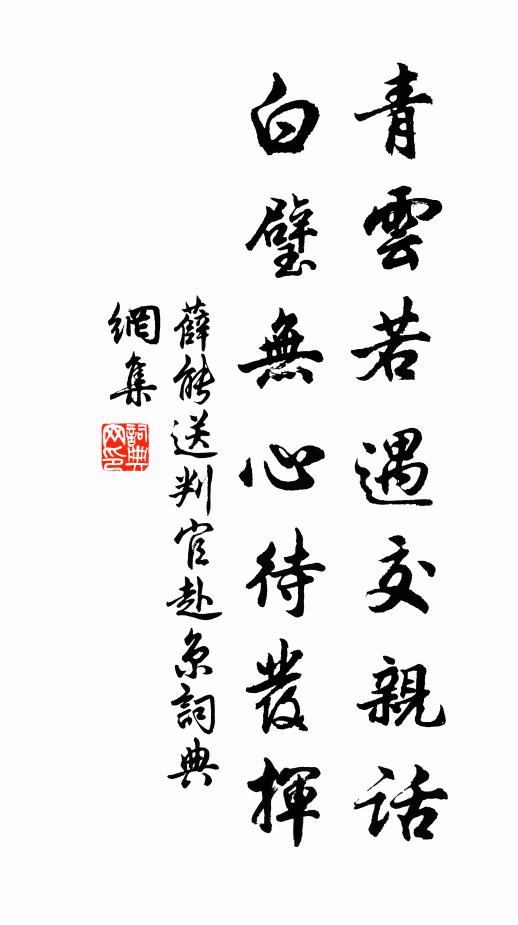 青雲若遇交親話
白璧無心待發揮
薛能送判官赴京詞典
網集
詞典
网印